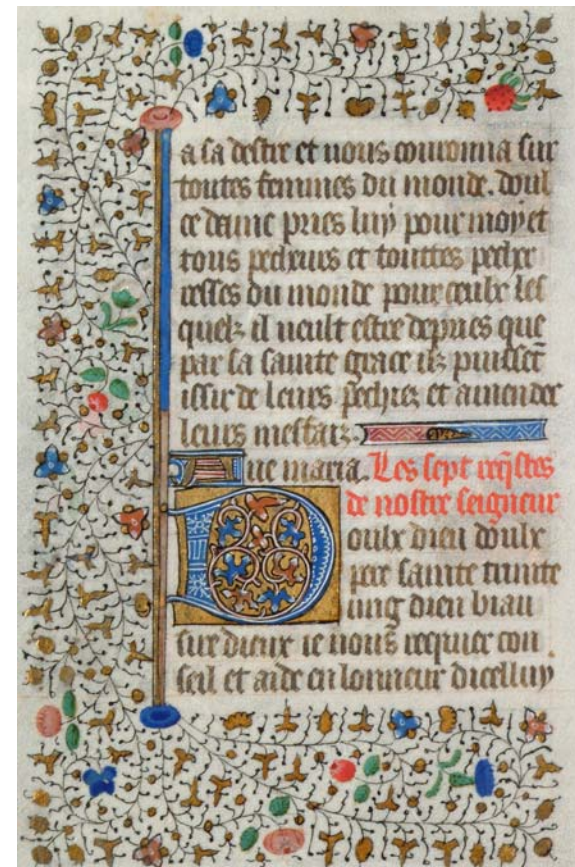 a sa destre et nous couronna sur
toutes femmes du monde. doul
ce dame pries luy pour moy et
tous pecheurs et touttes peche
resses du monde pour ceulx les
quelz il ueult estre depries que
par sa sainte grace ilz puissēt
issir de leurs pechiez et amender
leurs meffaiz.
Aue maria. Les sept req̄stes
de nostre seigneur
Doulx dieu doulx
pere sainte trinite
ung dieu biau
sire dieux ie uous requier con
seil et aide en lonneur dicelluy